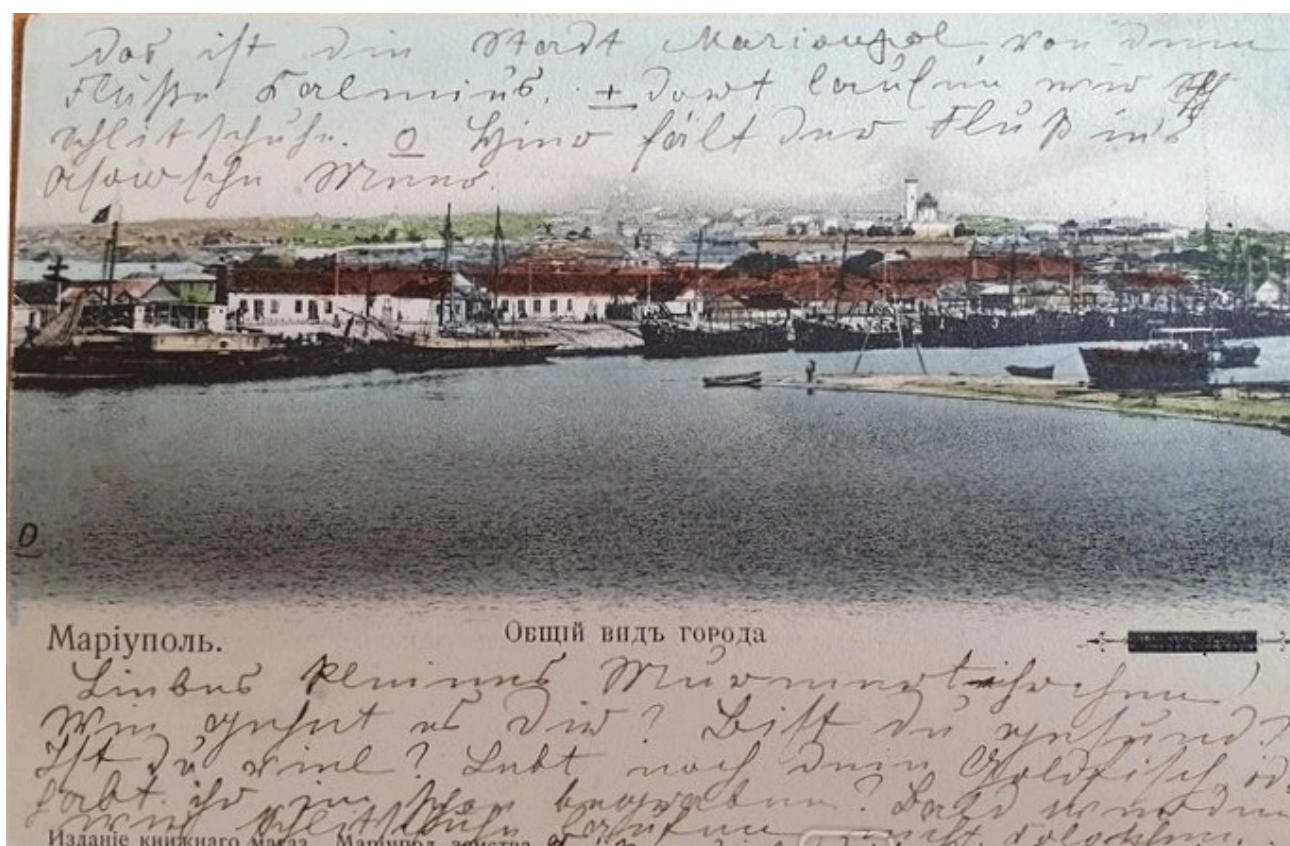 Das ist die Stadt Marioupol von dem
Fluße Kalmius. + Dort laufen wir
Schlitschuhe. O Hier fält der Fluß ins
Asowsche Meer.
O
Маріуполь.
Общій видъ города
Liebes kleines Murmertierchen!
Wie gehet es dir? Bist du gesund?
Ißt du viel? Lebt noch dein Goldfisch od
habt ihr in schon begraben? Bald werden
wir Schlitschuhe laufen nicht
Изданіе книжнаго магаз. Маріупол. земства